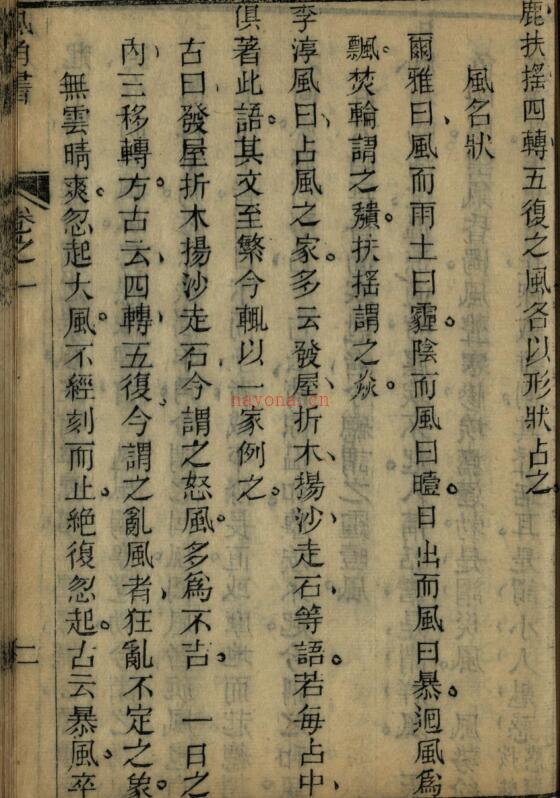 鹿扶搖四轉五復之風各以形狀占之
風名狀
爾雅曰風而雨土曰霾陰而風曰曀日出而風曰暴迴風爲
飄焚輪謂之穨扶搖謂之猋
李淳風曰占風之家多云發屋折木揚沙走石等語若每占中
俱著此語其文至繁今輒以一家例之
古曰發屋折木揚沙走石今謂之怒風多爲不吉 一日之
內三移轉方古云四轉五復今謂之亂風者狂亂不定之象
無雲晴爽忽起大風不經刻而止絕復忽起古云暴風卒
風角書
卷之一
二
nayona.cn